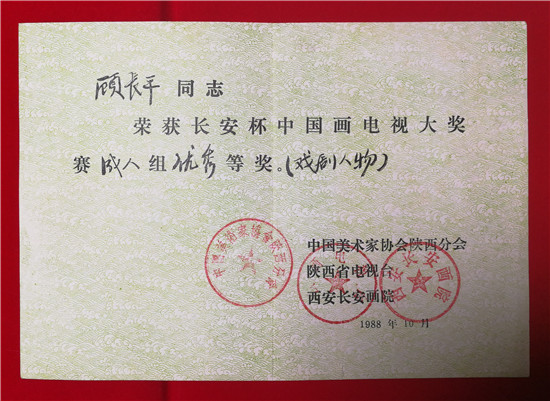 顾长平 同志
荣获长安杯中国画电视大奖
赛成人组优秀等奖。(戏剧人物)
中国美术家协会陕西分会
陕西省电视台
西安长安画院
1988 年 10 月
西安长安画院